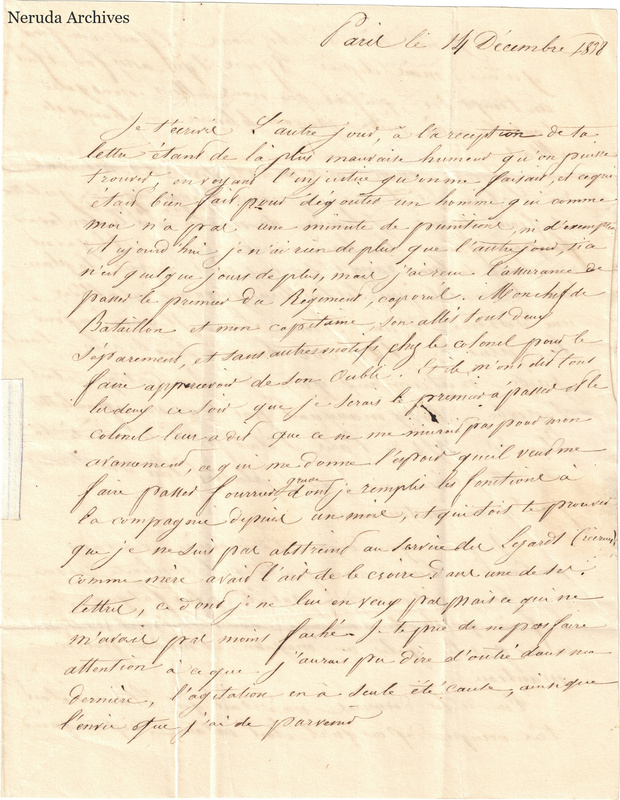 Neruda Archives
Paris le 14 Décembre 1838
Je t'écrivis l'autre jour, à la reception de ta
lettre étant de la plus mauvaise humeur qu'on puisse
trouver, en voyant l'injustice qu'on me faisait, et ce qui
était bien fait pour dégouter un homme qui comme
moi n'a pas une minute de punitions, ni d'exemples
Aujourd'hui je n'ai rien de plus que l'autre jour, si ce
n'est quelque jours de plus, mais j'ai reçu l'assurance de
passer le premier du Régiment, caporal. Mon chef de
Bataillon et mon capitaine, son allés tous deux
séparement, et sans autres motifs, chez le colonel pour le
faire appercevoir de son oubli. Et ils m'ont dit tous
les deux ce soir que je serais le premier à passer et le
colonel leur a dit que ce ne me nuirait pas pour mon
avancement, ce qui me donne l'espoir qu'il veut me
faire passer fourrier grade dont je remplis les fonctions à
la compagnie depuis un mois, et qui doit te prouver
que je ne suis pas abstreind au service des Lezards
comme mère avait l'air de le croire dans une de ses
lettres, ce dont je ne lui en veux pas mais ce qui ne
m'avait pas moins faché. Je te prie de ne pas faire
attention à ce que j'aurais pu dire d'outré dans ma
dernière, l'agitation en a seule été cause, ainsi que
l'envie que j'ai de parvenir